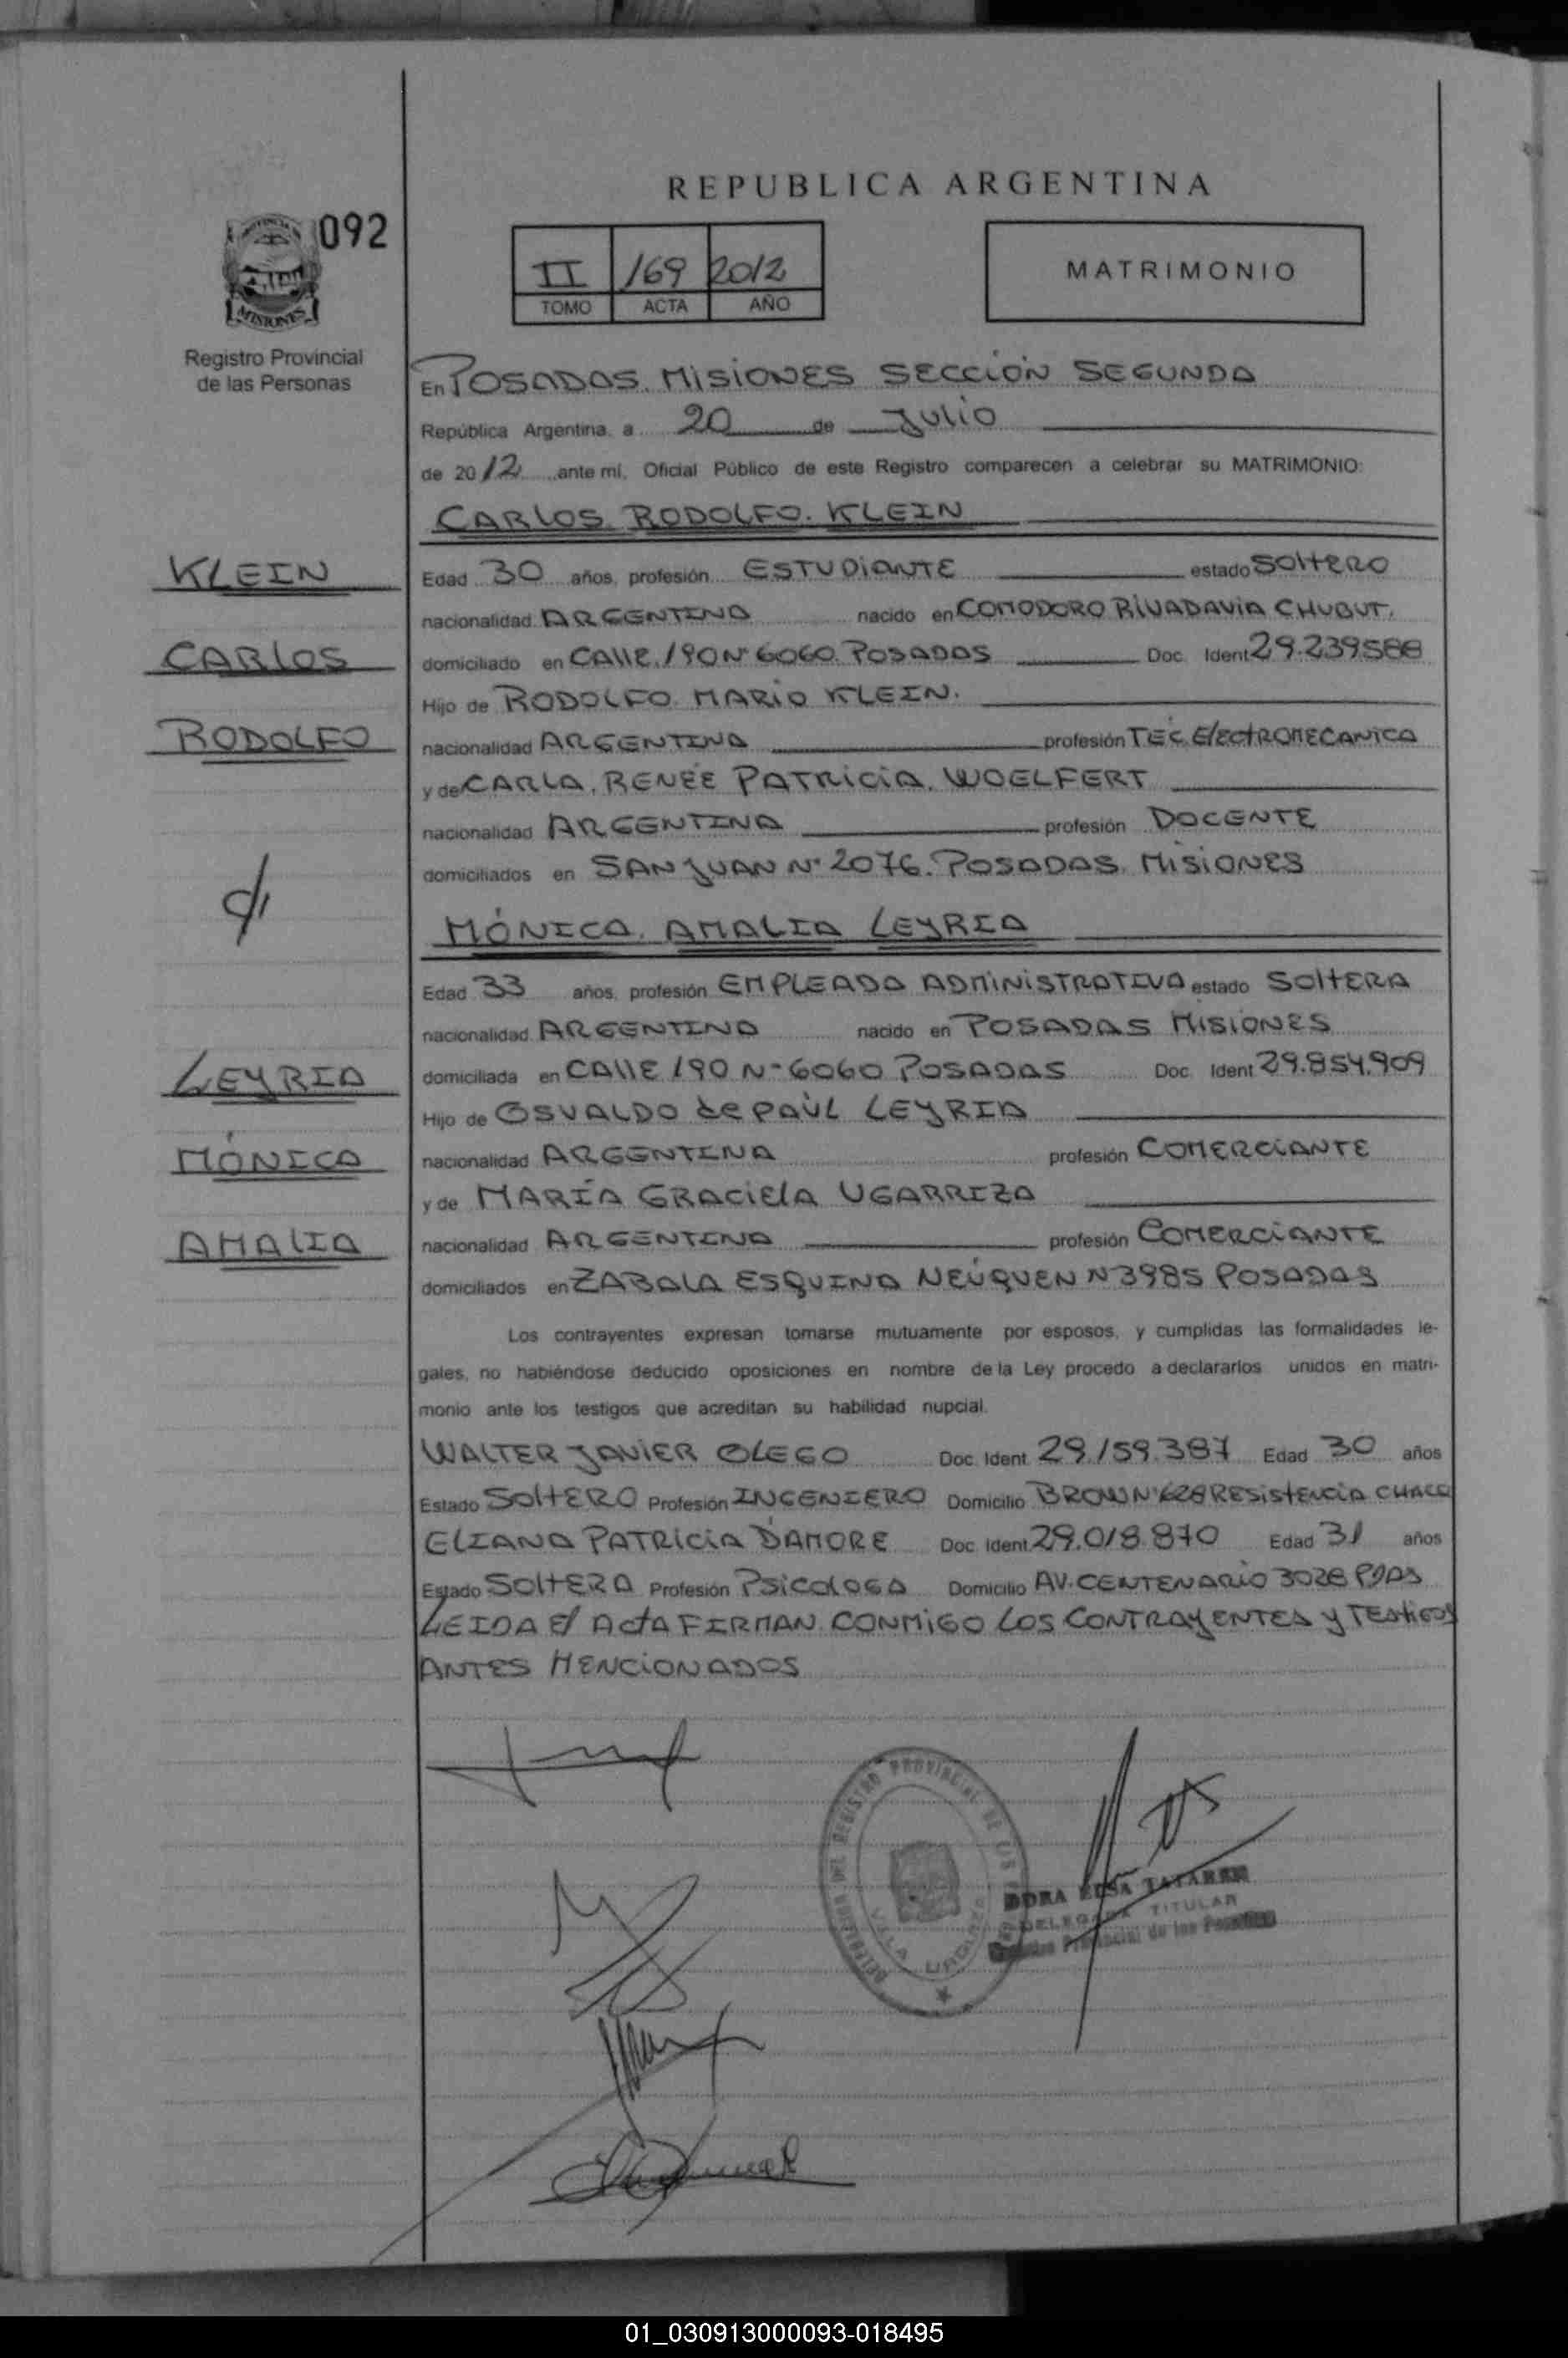 REPUBLICA ARGENTINA
092
II /169 2012
TOMO ACTA AÑO
MATRIMONIO
MISIONES
Registro Provincial
de las Personas
En POSADAS. MISIONES SECCIÓN SEGUNDA
República Argentina, a 20 de Julio
de 2012 ante mí, Oficial Público de este Registro comparecen a celebrar su MATRIMONIO:
CARLOS. RODOLFO. KLEIN
KLEIN
Edad 30 años, profesión ESTUDIANTE estado SOLTERO
nacionalidad ARGENTINA nacido en COMODORO RIVADAVIA CHUBUT.
CARLOS
domiciliado en CALLE. 190 Nº 6060. POSADAS Doc. Ident 29.239588
Hijo de RODOLFO. MARIO KLEIN.
RODOLFO
nacionalidad ARGENTINA profesión TEC. ElectROMECANICO
y de CARLA. RENÉE PATRICIA. WOELFERT
nacionalidad ARGENTINA profesión DOCENTE
domiciliados en SAN JUAN Nº 2076. POSADAS. MISIONES
MÓNICA. AMALIA LEYRIA
Edad 33 años, profesión EMPLEADA ADMINISTRATIVA estado SOLTERA
nacionalidad ARGENTINA nacido en POSADAS MISIONES
LEYRIA
domiciliada en CALLE 190 Nº 6060 POSADAS Doc. Ident 29.854.909
Hijo de OSVALDO de PAÚL LEYRIA
MÓNICA
nacionalidad ARGENTINA profesión COMERCIANTE
y de MARÍA GRACIELA UGARRIZA
AMALIA
nacionalidad ARGENTINA profesión COMERCIANTE
domiciliados en ZABALA ESQUINA NEÚQUEN N 3985 POSADAS
Los contrayentes expresan tomarse mutuamente por esposos, y cumplidas las formalidades le-
gales, no habiéndose deducido oposiciones en nombre de la Ley procedo a declararlos unidos en matri-
monio ante los testigos que acreditan su habilidad nupcial.
WALTER JAVIER OLEGO Doc. Ident. 29.159.387 Edad 30 años
Estado SOLTERO Profesión INGENIERO Domicilio BROWN Nº 628 RESISTENCIA CHACO
ELIANA PATRICIA D'AMORE Doc. Ident. 29.018.870 Edad 31 años
Estado SOLTERA Profesión PSICOLOGA Domicilio AV. CENTENARIO 3028 PDAS
LEIDA El ActA FIRMAN CONMIGO LOS CONTRAYENTES y TESTIGOS
ANTES MENCIONADOS
REGISTRO PROVINCIAL DE LAS
VILLA URQUIZA
DORA ELSA
DELEGADA TITULAR
Provincial de las Personas
01_030913000093-018495